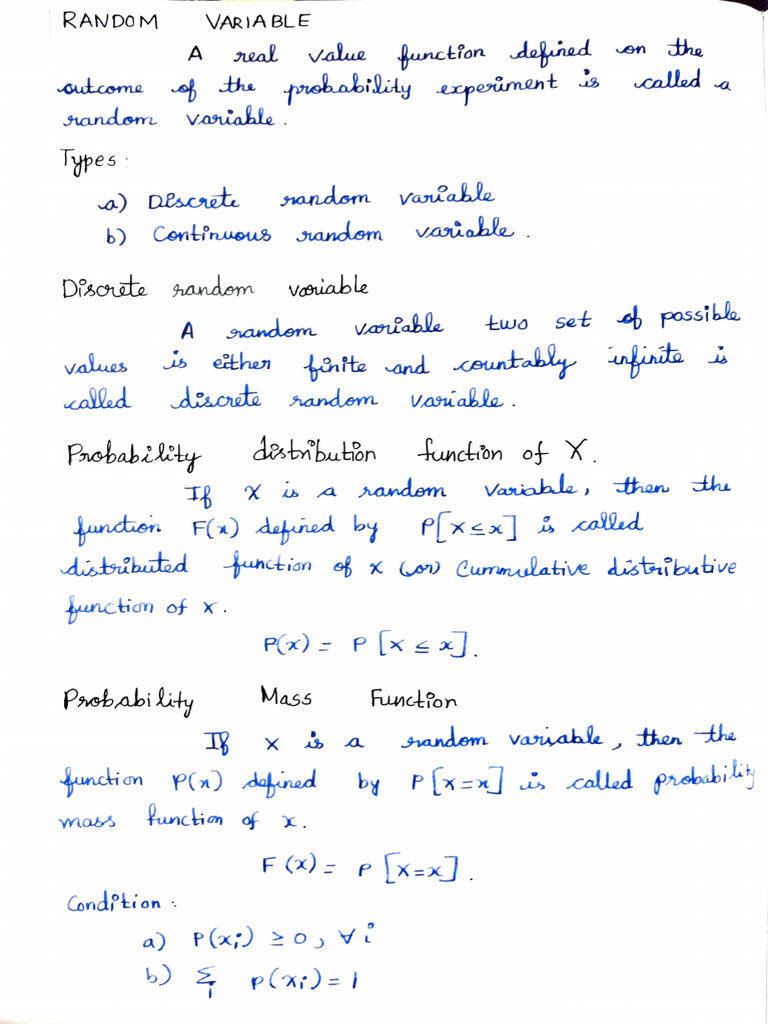 RANDOM VARIABLE
A real value function defined on the
outcome of the probability experiment is called a
random variable.
Types:
a) Discrete random variable
b) Continuous random variable.
Discrete random variable
A random variable two set of possible
values is either finite and countably infinite is
called discrete random variable.
Probability distribution function of X.
If X is a random variable, then the
function F(x) defined by P[X≤x] is called
distributed function of x (or) Cummulative distributive
function of x.
P(x) = P [X ≤ x].
Probability Mass Function
If x is a random variable, then the
function P(x) defined by P[X=x] is called probability
mass function of x.
F(x) = P [X=x].
Condition:
a) P(xi) ≥ 0, ∀ i
b) Σi P(xi) = 1